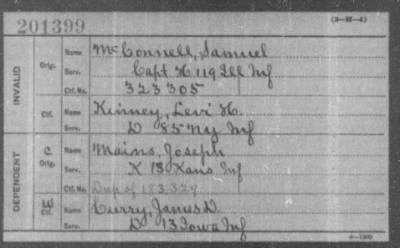 201399 (3-22-4)
INVALID
Orig. Name McConnell, Samuel
Serv. Capt H. 119 Ill Inf
Ctf. No. 323305
Ctf. Name Kinney, Levi H.
Serv. D 85 NY Inf
DEPENDENT
C
Orig. Name Mains, Joseph
Serv. K 13 Kans Inf
Ctf. No. Dup of 183329
W
Ctf. Name Curry, James D
Serv. D 13 Iowa Inf